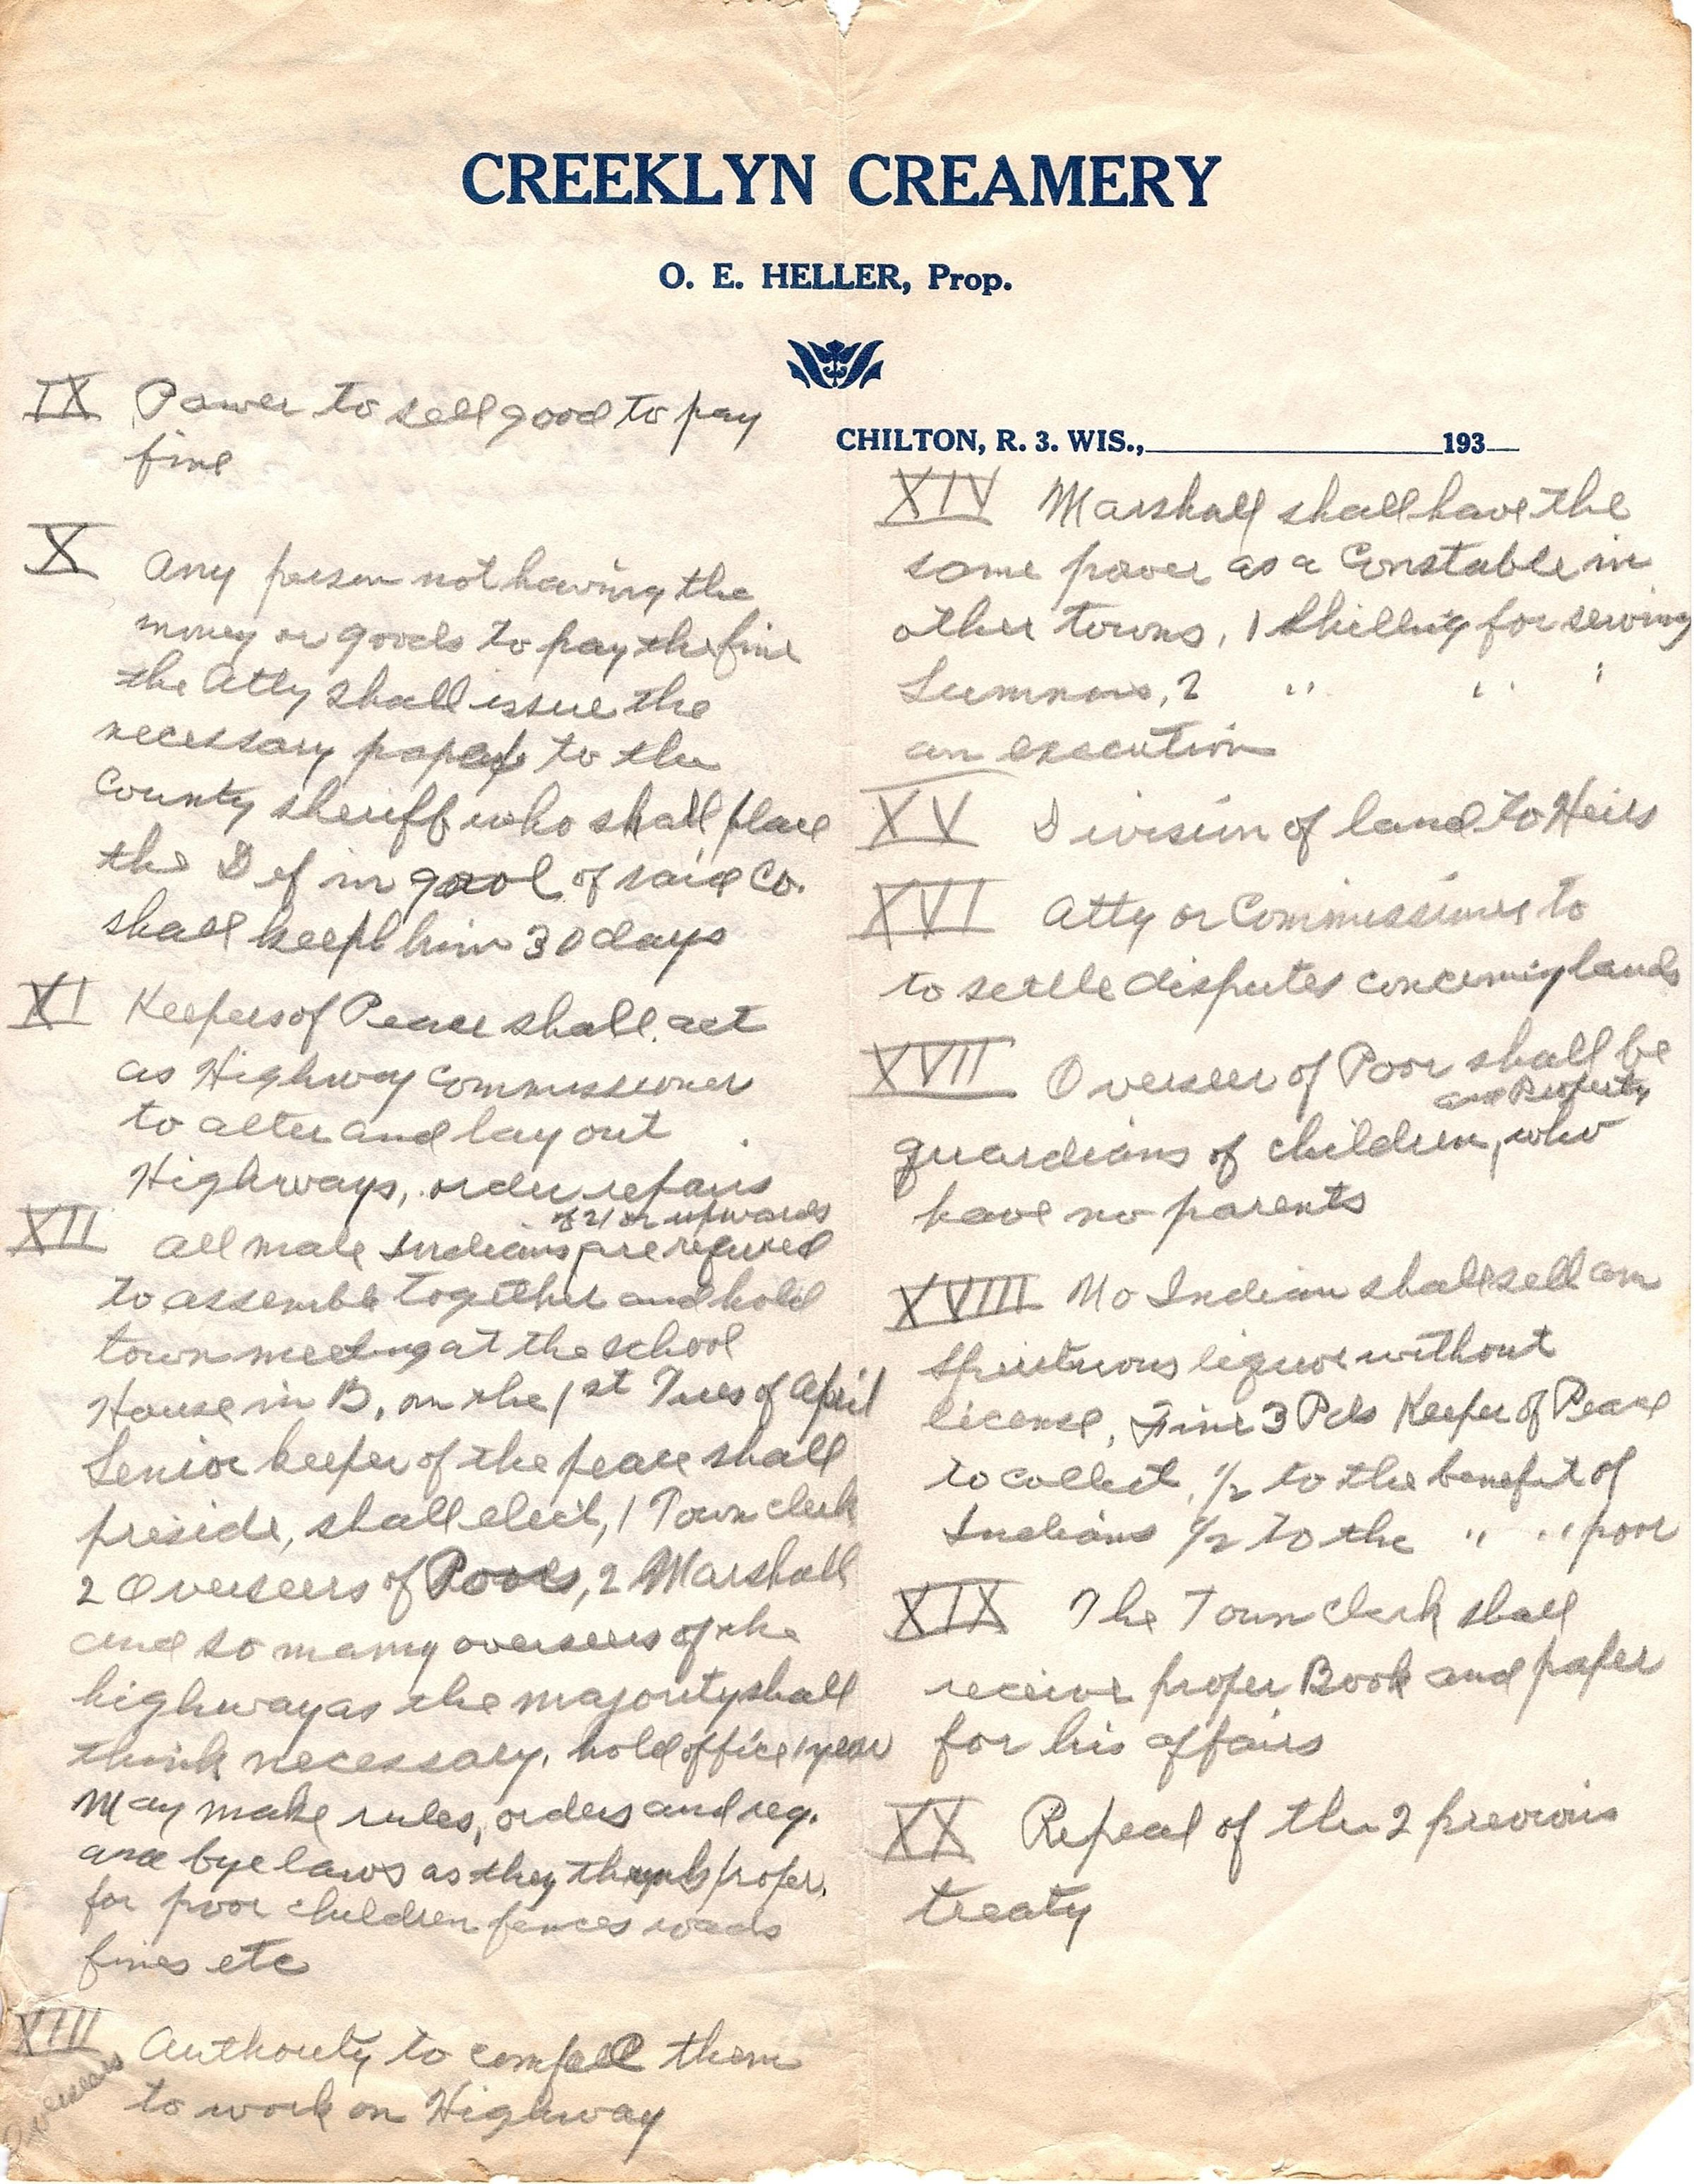 CREEKLYN CREAMERY
O. E. HELLER, Prop.
CHILTON, R. 3. WIS., 193
IX Power to sell good to pay
fine
X Any person not having the
money or goods to pay the fine
the Atty shall issue the
necessary papers to the
County sheriff who shall place
the Def in gaol of said Co.
shall keep him 30 days
XI Keepers of Peace shall act
as Highway commissioner
to alter and lay out
Highways, order repairs
of 21 or upwards
XII All male Indians are required
to assemble together and hold
town meeting at the school
House in B, on the 1st Tues of April
Senior keeper of the peace shall
preside, shall elect, 1 Town clerk
2 Overseers of Poors, 2 Marshall
and so many overseers of the
highway as the majority shall
think necessary. hold office 1 year
May make rules, orders and reg.
and bye laws as they think proper.
for poor children fences roads
fines etc
XIII Authority to compell them
Overseers
to work on Highway
XIV Marshall shall have the
same power as a Constable in
other towns, 1 Shilling for serving
Summons, 2 " " "
an execution
XV Division of land to Heirs
XVI Atty or Commissioners to
to settle disputes concerning lands
XVII Overseer of Poor shall be
and Property
guardians of children, who
have no parents
XVIII No Indian shall sell am
spirituous liquor without
license, Fine 3 Pds Keeper of Peace
to collect, 1/2 to the benefit of
Indians 1/2 to the " " poor
XIX The Town clerk shall
receive proper Book and paper
for his affairs
XX Repeal of the 2 previous
treaty